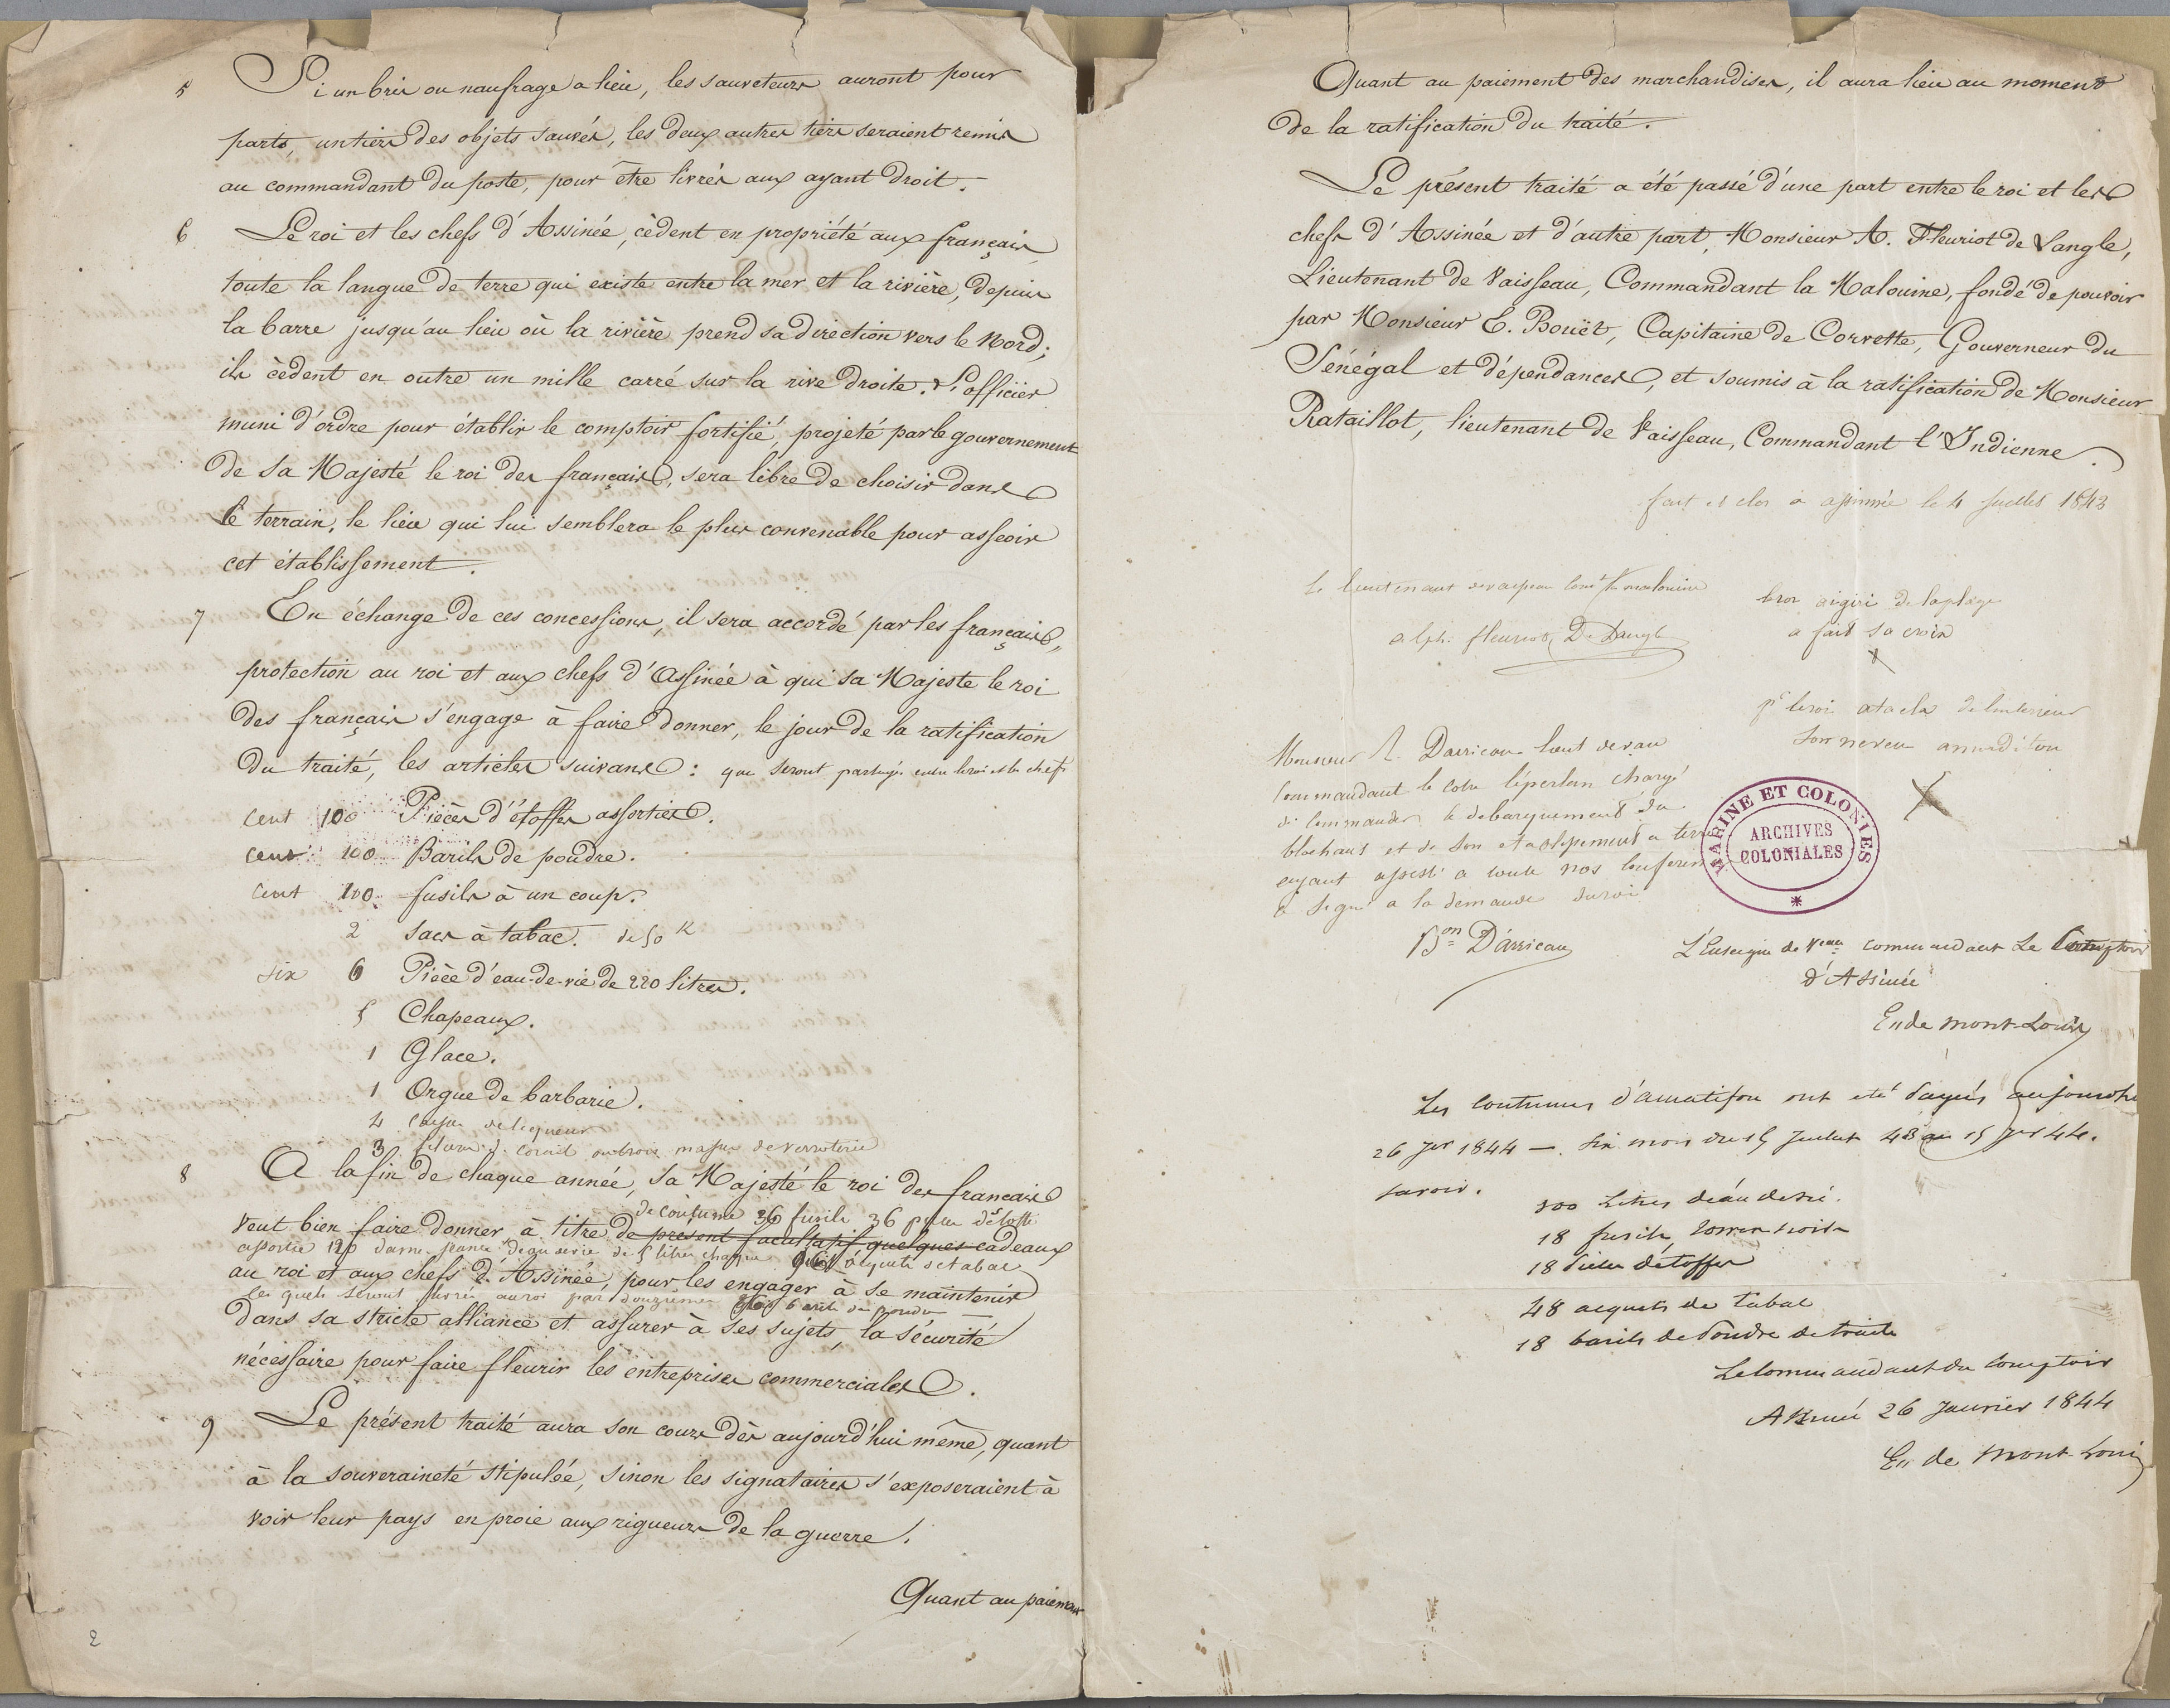 5 Si un bris ou naufrage a lieu, les sauveteurs auront pour
part, un tiers des objets sauvés, les deux autres tiers seraient remis
au commandant du poste, pour être livrés aux ayant droit.
6 Le roi et les chefs d'Assinée, cèdent en propriété aux français
toute la langue de terre qui existe entre la mer et la rivière, depuis
la barre jusqu'au lieu où la rivière prend sa direction vers le Nord;
ils cèdent en outre un mille carré sur la rive droite. L'officier
muni d'ordre pour établir le comptoir fortifié, projeté par le gouvernement
de Sa Majesté le roi des français, sera libre de choisir dans
le terrain, le lieu qui lui semblera le plus convenable pour asseoir
cet établissement.
7 En échange de ces concessions, il sera accordé par les français,
protection au roi et aux chefs d'Assinée à qui sa Majesté le roi
des français s'engage à faire donner, le jour de la ratification
du traité, les articles suivans : que seront partagés entre le roi et les chefs
cent 100 Pièces d'étoffes assorties.
cent 100 Barils de poudre.
cent 100 fusils à un coup.
2 sacs à tabac. de 50 K
six 6 Pièce d'eau-de-vie de 220 litres.
5 Chapeaux.
1 Glace.
1 Orgue de barbarie.
4 caisses de liqueur
3 corail ou trois masses de verroterie
8 A la fin de chaque année, Sa Majesté le roi des français
de coutume 36 fusils 36 pièces d'étoffe
veut bien faire donner à titre de présent facultatif quelques cadeaux
assorties dames jeannes de 5 litres chaque 96 acquets de tabac
au roi et aux chefs d'Assinée, pour les engager à se maintenir
les quels seront livrés au roi par douzièmes barils de poudre
dans sa stricte alliance et assurer à ses sujets, la sécurité
nécessaire pour faire fleurir les entreprises commerciales.
9 Le présent traité aura son cours dès aujourd'hui même, quant
à la souveraineté stipulée, sinon les signataires s'exposeraient à
voir leur pays en proie aux rigueurs de la guerre.
Quant au paiement
2
Quant au paiement des marchandises, il aura lieu au moment
de la ratification du traité.
Le présent traité a été passé d'une part entre le roi et les
chefs d'Assinée et d'autre part, Monsieur A. Fleuriot de Langle,
Lieutenant de Vaisseau, Commandant la Malouine, fondé de pouvoir
par Monsieur E. Bouët, Capitaine de Corvette, Gouverneur du
Sénégal et dépendances, et soumis à la ratification de Monsieur
Rataillot, lieutenant de Vaisseau, Commandant l'Indienne.
fait et clos a assinée le 4 Juillet 1843
Le lieutenant de vaisseau Comt la malouine
alph. fleuriot De Langle
aigiri de la plage
a fait sa croix
X
pr le roi atacla de l'interieur
son neveu
X
Monsieur Darricau lieut de vau
commandant le cotre l'éperlan chargé
de commander le debarquement du
blockaus et de son etablissement a terre
ayant assisté a toute nos conferences
a signé a la demande du roi
Bon Darricau
MARINE ET COLONIES
ARCHIVES
COLONIALES
L'Enseigne de Veau commandant Le Comptoir
d'Assinée
En de Mont-Louis
Les coutumes d'amatifou ont été payés aujourd'hui
26 Jer 1844 — six mois du 15 Juillet 43 au 15 Jer 44.
savoir.
300 Litres d'eau de vie.
18 fusils
18 pièces d'étoffes
48 acquets de tabac
18 barils de poudre de traite
Le Commandant du Comptoir
Assinée 26 Janvier 1844
En de Mont-Louis